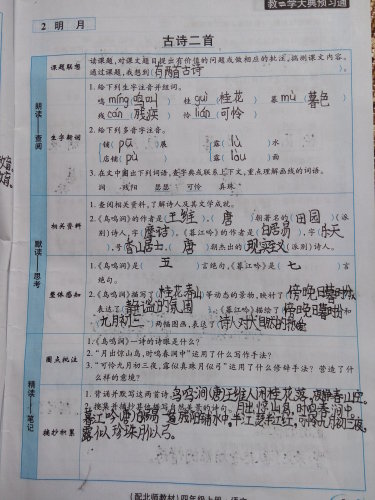 教与学大典预习通
2 明 月
古诗二首
课题联想
读课题,对课文题目提出有价值的问题或做相应的批注,揣测课文内容。
通过课题,我想到(有两首古诗)
朗读 查阅
生字新词
1. 给下列生字注音并组词。
鸣 míng(鸣叫) 桂 guì(桂花) 暮 mù(暮色)
残 cán(残疾) 怜 lián(可怜)
2. 给下列多音字注音。
铺(pū)展 露(lù)水
店铺(pù) 露(lòu)面
3. 在文中圈出下列词语,查字典或联系上下文,重点理解画线的词语。
涧 残阳 瑟瑟 可怜 真珠
默读 思考
相关资料
1. 查阅相关资料,了解诗人及其文学成就。
2.《鸟鸣涧》的作者是(王维),(唐)朝著名的(田园)(派
别)诗人,字(摩诘)。《暮江吟》的作者是(白居易),字(乐天
),号(香山居士),(唐)朝杰出的(现实主义)(派别)诗人。
整体感知
1.《鸟鸣涧》是(五)言绝句,《暮江吟》是(七)
言绝句。
2.《鸟鸣涧》描写了(桂花、春山)等动态的景物,映衬了
表达了(静谧的氛围)《暮江吟》描绘了(傍晚日暮时)和
(九月初三)两幅图画,表达了(诗人对大自然的热爱)
精读 笔记
圈点批注
1.《鸟鸣涧》一诗的诗眼是什么?
2. “月出惊山鸟,时鸣春涧中”运用了什么写作手法?
3. “可怜九月初三夜,露似真珠月似弓”运用了什么修辞手法?营造了什
么样的意境?
摘抄积累
1. 背诵并默写这两首诗。鸟鸣涧(唐)王维人闲桂花落,夜静春山空。
月出惊山鸟,时鸣春涧中
暮江吟(唐)白居易一道残阳铺水中,半江瑟瑟半江红,可怜九月初三夜,
露似珍珠月似弓。
(配北师教材)四年级上册·语文